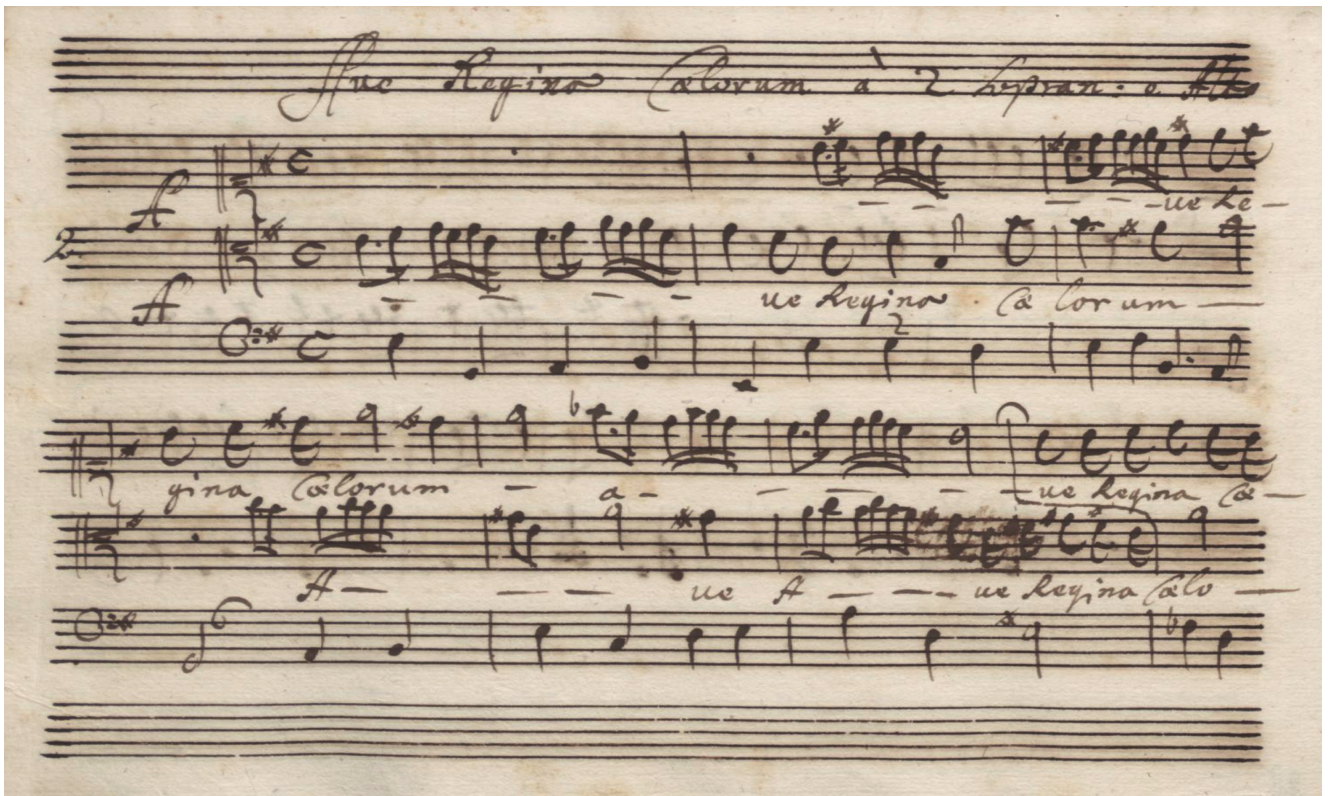 Ave Regina Cælorum à 2 Sopran: e Alto
A - - - - ve Re -
2
A - - - - ve Regina Cælorum -
2
gina Cælorum - a - - - - - ve Regina Cæ -
A - - - ve A - - - ve Regina Cælo -